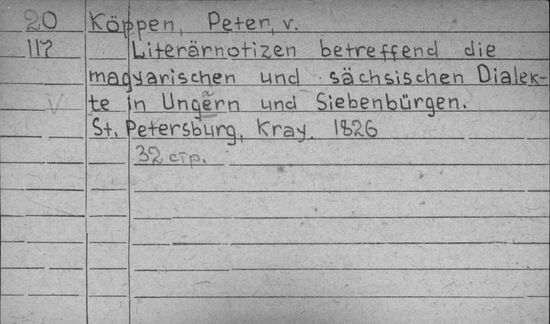 20 Köppen, Peter, v.
117 Literärnotizen betreffend die
magyarischen und sächsischen Dialek-
V te in Ungern und Siebenbürgen.
St. Petersburg, Kray. 1826
32 стр.